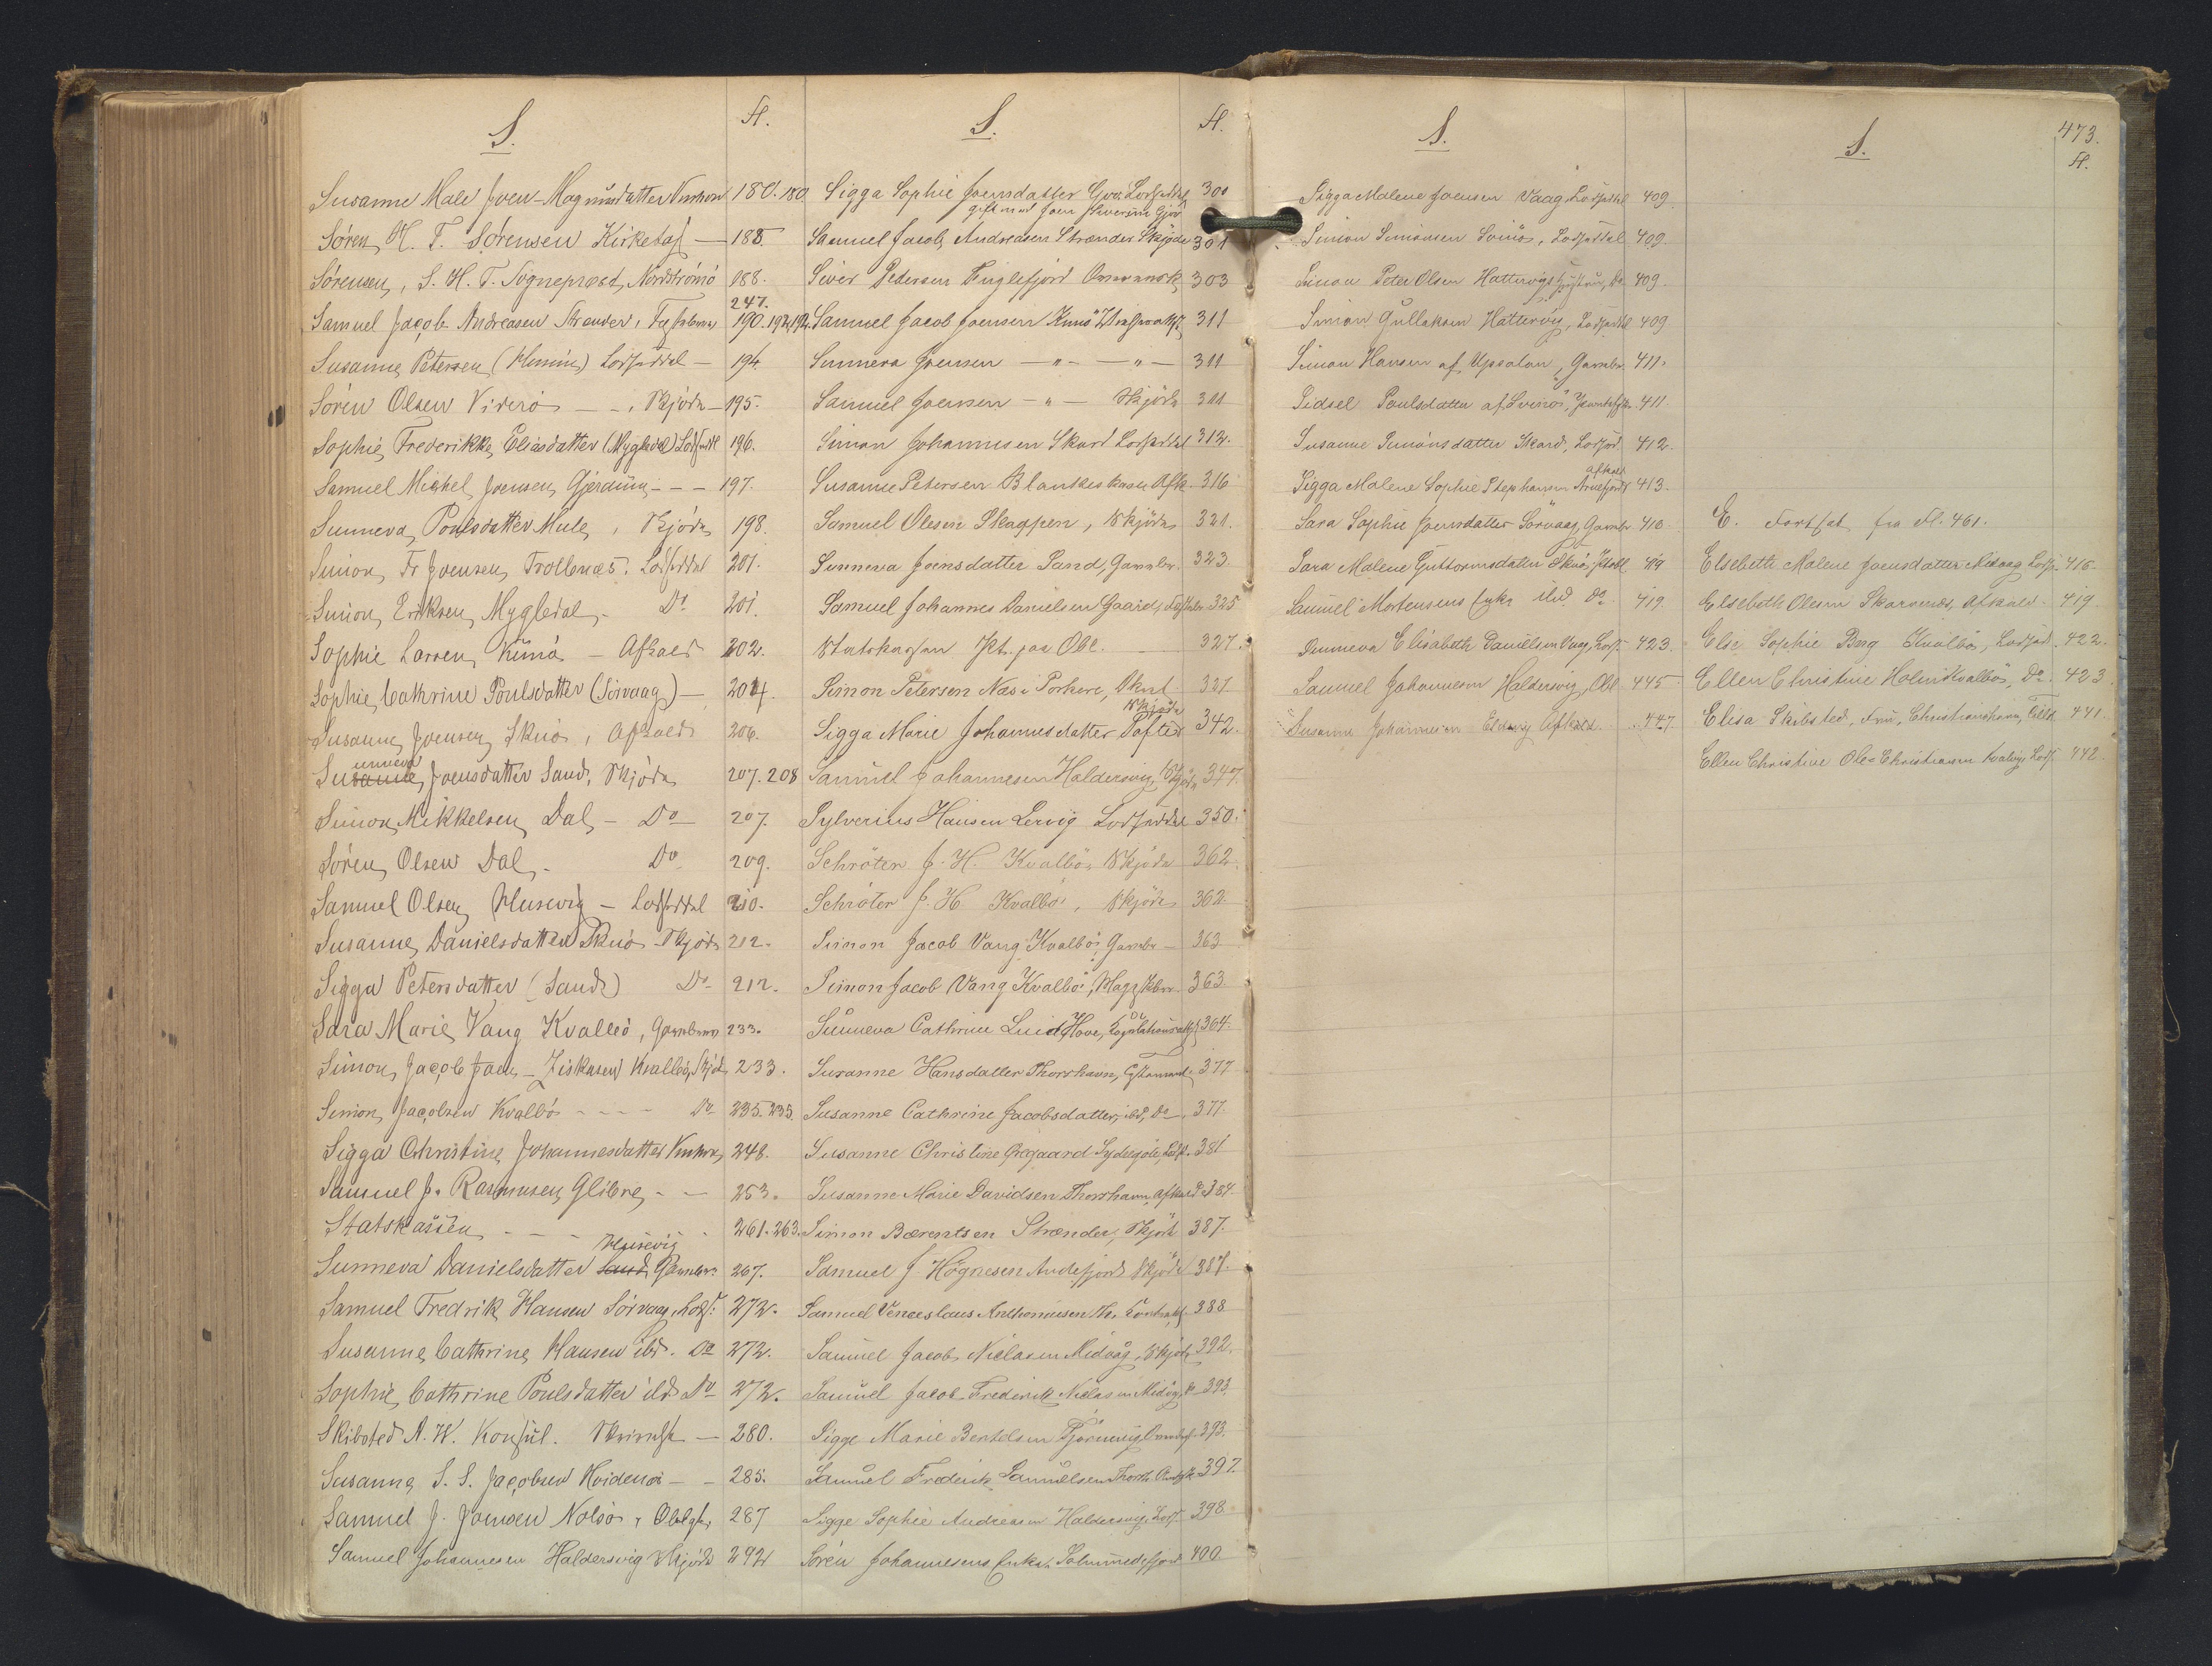 S.
Fl.
Susanne Male Joen-Magnusdatter 180. 180
Søren H. T. Sørensen Kirketaf — 185.
Sørensen, S. H. T. Sogneprest, Nordströmö 188.
247.
Samuel Jacob Andreasen Strender, 190. 192, 194.
Susanne Petersen (Husum) Lodseddel — 194.
Sören Olsen Viderö — Skjöde — 195.
Sophie Frederikke Eliasdatter (Mygledal) Lodseddl 196.
Samuel Michel Joensen, Gjerdum — 197.
Sunneva Poulsdatter Mule, Skjöde 198.
Simon Fr Joensen, Trollenæs. Lodseddel 201.
Simon Eriksen, Mygledal, Do 201.
Sophie Larsen, Kunö — Afkald 202.
Sophie Cathrine Poulsdatter (Sörvaag) — 204.
Susanne Joensen, Skuö, Afkald 206.
unneva
Susanne Joensdatter Sand, Skjöde 207. 208
Simon Mikkelsen, Dal, — Do 207.
Sören Olsen Dal, Do 209.
Samuel Olsen, Husevig — Lodseddel 210.
Susanne Danielsdatter Skuö — Skjöde 212.
Sigga Petersdatter (Sand) Do 212.
Sara Marie Vang Kvalbö, Gavebrev 233.
Simon Jacob Joen — Ziskasen Kvalbö, Skjöd 233.
Simon Jacobsen Kvalbö — Do 235. 235.
Sigga Christine Johannesdatter 248.
Samuel J. Rasmussen, Glibre, — 253.
Statskassen, — 261. 263.
Husevig
Sunneva Danielsdatter Sand, Gavebr. 267.
Samuel Fredrik Hansen Sörvaag, Lods. 272.
Susanne Cathrine Hansen ibd. Do 272.
Sophie Cathrine Poulsdatter ibd Do 272.
Skibsted N. W. Konsul. — 280.
Susanne S. S. Jacobsen Hvidenæs — 285.
Samuel J. Joensen Nolsö, 287
Samuel Johannesen Haldersvig Skjöde 292
S.
Fl.
Sigga Sophie Joensdatter Gjov. Lodseddel 300
gift med Joen Severin Gjov
Samuel Jacob Andreasen Strænder Skjöde 301
Siver Pedersen Fuglefjord 303
Samuel Jacob Joensen Kunö 311
Sunneva Joensen — " — " — 311
Samuel Joensen — " — Skjöde 311
Simon Johannesen Skard Lodseddel 312.
Susanne Petersen Blankeskaale Afk. 316
Samuel Olesen Skagpen, Skjöde 321.
Sunneva Joensdatter Sand, Gavebr. 323
Samuel Johannes Danielsen Gaard, 325
Statskassen Pet. paa Obl. — 327.
Simon Petersen Næs i Porkere, 331
Skjöde
Sigga Marie Johannesdatter Tofter 342.
Samuel Johannesen Haldersvig, Skjöde 347.
Sylverius Hansen Lervig Lodseddel 350.
Schröter J. H. Kvalbö, Skjöde 362.
Schröter J. H. Kvalbö, Skjöde 362.
Simon Jacob Vang Kvalbö, Gavebr — 363
Simon Jacob Vang Kvalbö, 363.
Sunneva Cathrine 364.
Susanne Hansdatter Thorshavn, 377
Susanne Cathrine Jacobsdatter, ibd, Do. 377.
Susanne Christine Öregaard 381
Susanne Marie Davidsen Thorshavn, Afkald 384.
Simon Bærentsen Strænder, Skjöde 387.
Samuel J Högnesen Andefjord Skjöde 387.
Samuel Venceslaus Anthoniusen 388
Samuel Jacob Niclasen Midvaag, Skjöde 392.
Samuel Jacob Frederik Niclasen Midvg, do 393.
Sigge Marie Bertelsen Tjörnevig 393.
Samuel Frederik Samuelsen Thorsh. 397.
Sigge Sophie Andreasen Haldersvig, Lods. 398.
Sören Johannesens Enke, 400.
S.
Sigga Malene Joensen Vaag Lodseddel 409.
Simon Simonsen Svinö, Lodseddel 409.
Simon Peter Olsen Hattervig, Do 409.
Simon Gullaksen Hattervig, Lodseddel 409
Simon Hansen af Upsalon, Gavebr. 411.
Sidsel Poulsdatter af Svinö, 411.
Susanne Simonsdatter Skard, Lodsed 412.
afkald
Sigga Malene Sophie Stephansen Arnefjord 413.
Sara Sophie Joensdatter Sörvaag, Gavebr 416.
Sara Malene Guttormsdatter Skuö, 419
Samuel Mortensens Enke ibd. Do. 419.
Sunneva Elisabeth Danielsen Vaag, Lods. 423.
Samuel Johannesen Haldersvig, Obl 445
Susanne Johannesen Eldevig Afkald. 447.
S.
473.
Fl.
E. Fortsat fra Fl. 461.
Elsebeth Malene Joensdatter Midvaag Lods. 416.
Elsebeth Olesen Skarvenæs, Afkald. 419.
Else Sophie Berg Kvalbö, Lodsed. 422.
Ellen Christine Holm Kvalbö, Do. 423.
Elisa Skibsted, Fru, Christianshavn, 441.
Ellen Christine Ole-Christiansen Kvalvig, Lods. 442.